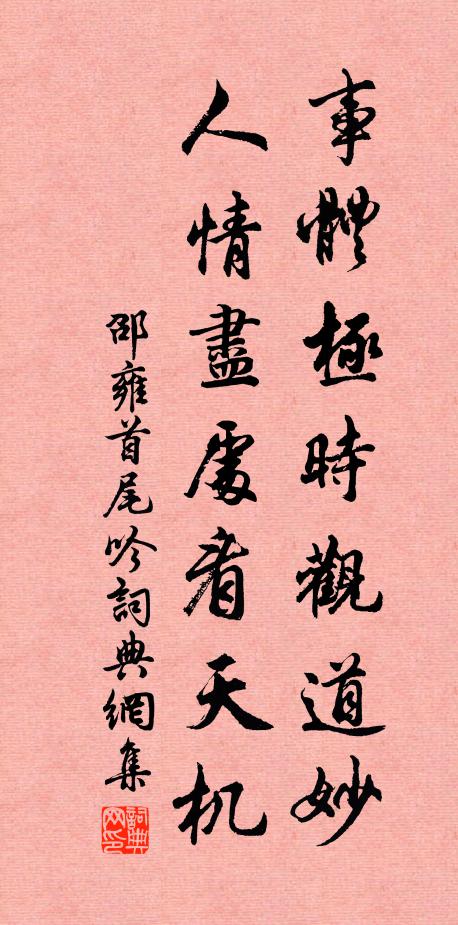 事體極時觀道妙
人情盡處看天机
邵雍首尾吟詞典網集
詞典网印